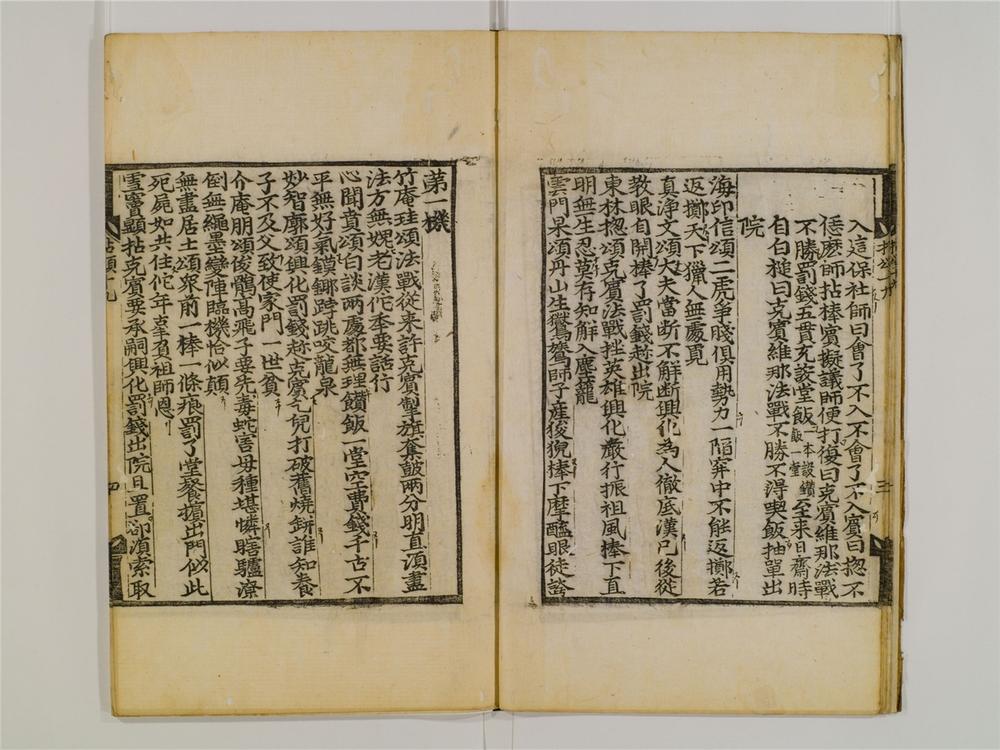 入這保社師曰會了不入不會了不入賓曰揔不
恁麽師拈棒賓擬議師便打復曰克賓維那法戰
不勝罰錢五貫充設堂飯一本設饡飯一堂至來日齋時
自白槌曰克賓維那法戰不勝不得喫飯抽單出
院
海印信頌二虎爭賤俱用勢力一陷穽中不能返擲若
返擲天下獵人無處覔
真淨文頌大夫當斷不解斷興化為人徹底漢已後從
教眼自開棒了罰錢趂出院
東林揔頌克賓法戰挫英雄興化嚴行振祖風棒下直
明無生忍莫存知解入塵籠
雲門杲頌丹山生鸑鷟師子產狻猊棒下摩醯眼徒誇
第一機
竹庵珪頌法戰從来許克賓掣旗奪皷兩分明直須盡
法方無媿老漢佗年要話行
心聞賁頌白談兩處都無理饡飯一堂空費錢千古不
平無好氣鏌鎁踍跳咬龍泉
妙智廓頌興化罰錢趂克賓乞兒打破舊燒缾誰知養
子不及父致使家門一世貧
介庵朋頌俊鶻高飛子要先毒蛇害母種堪憐瞎驢潦
倒無繩墨變陣臨機恰似顛
無盡居士頌衆前一棒一條痕罰了堂餐擯出門似此
死屍如共住佗年辜負祖師恩
雪竇顯拈克賓要承嗣興化罰錢出院且置却須索取